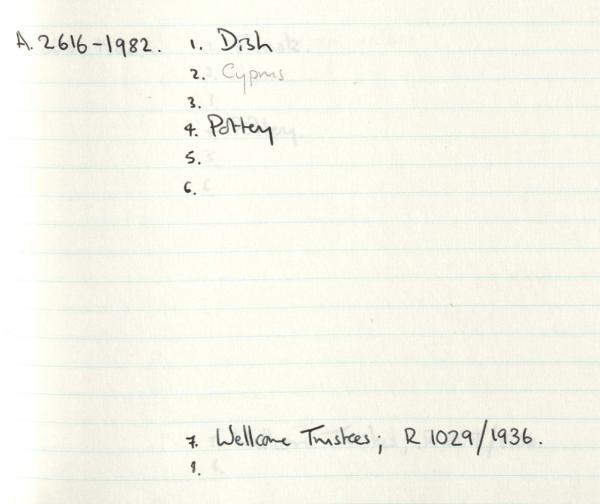 A.2616-1982. 1. Dish
2. Cyprus
3.
4. Pottery
5.
6.
7. Wellcome Trustees; R 1029/1936.
8.